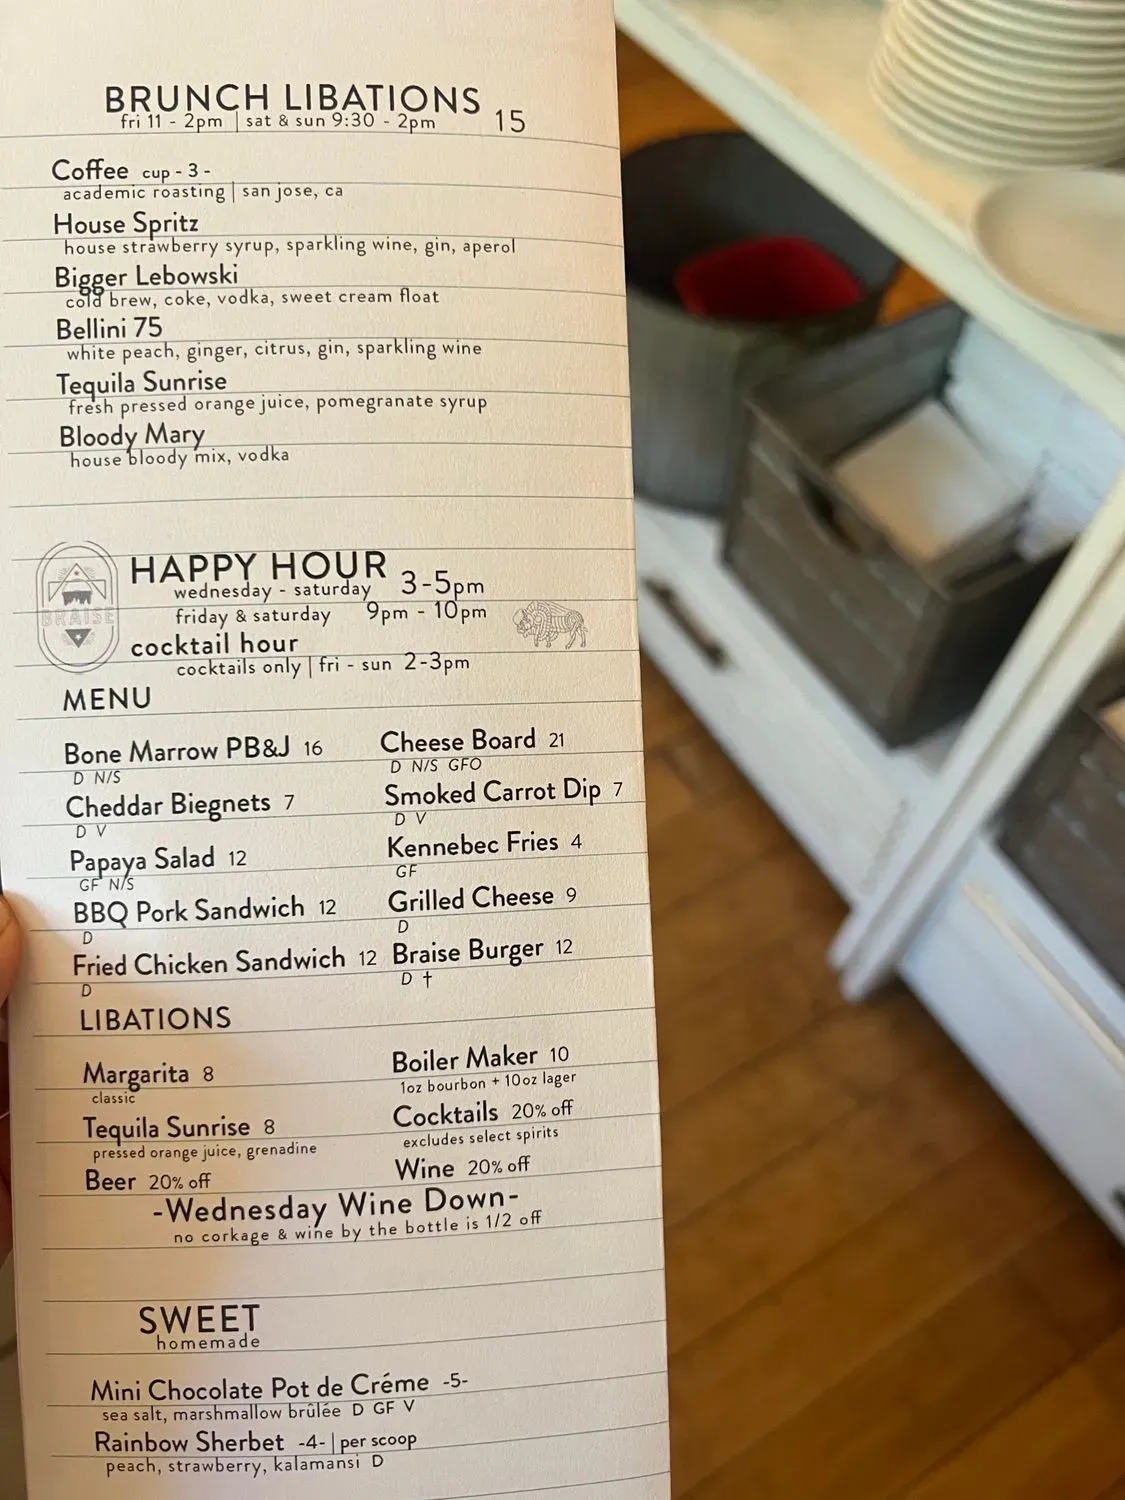 BRUNCH LIBATIONS 15
fri 11 - 2pm | sat & sun 9:30 - 2pm
Coffee cup - 3 -
academic roasting | san jose, ca
House Spritz
house strawberry syrup, sparkling wine, gin, aperol
Bigger Lebowski
cold brew, coke, vodka, sweet cream float
Bellini 75
white peach, ginger, citrus, gin, sparkling wine
Tequila Sunrise
fresh pressed orange juice, pomegranate syrup
Bloody Mary
house bloody mix, vodka
BRAISE
HAPPY HOUR
wednesday - saturday 3-5pm
friday & saturday 9pm - 10pm
cocktail hour
cocktails only | fri - sun 2-3pm
MENU
Bone Marrow PB&J 16
D N/S
Cheddar Biegnets 7
D V
Papaya Salad 12
GF N/S
BBQ Pork Sandwich 12
D
Fried Chicken Sandwich 12
D
Cheese Board 21
D N/S GFO
Smoked Carrot Dip 7
D V
Kennebec Fries 4
GF
Grilled Cheese 9
D
Braise Burger 12
D †
LIBATIONS
Margarita 8
classic
Tequila Sunrise 8
pressed orange juice, grenadine
Beer 20% off
Boiler Maker 10
1oz bourbon + 10oz lager
Cocktails 20% off
excludes select spirits
Wine 20% off
-Wednesday Wine Down-
no corkage & wine by the bottle is 1/2 off
SWEET
homemade
Mini Chocolate Pot de Créme -5-
sea salt, marshmallow brûlée D GF V
Rainbow Sherbet -4- | per scoop
peach, strawberry, kalamansi D